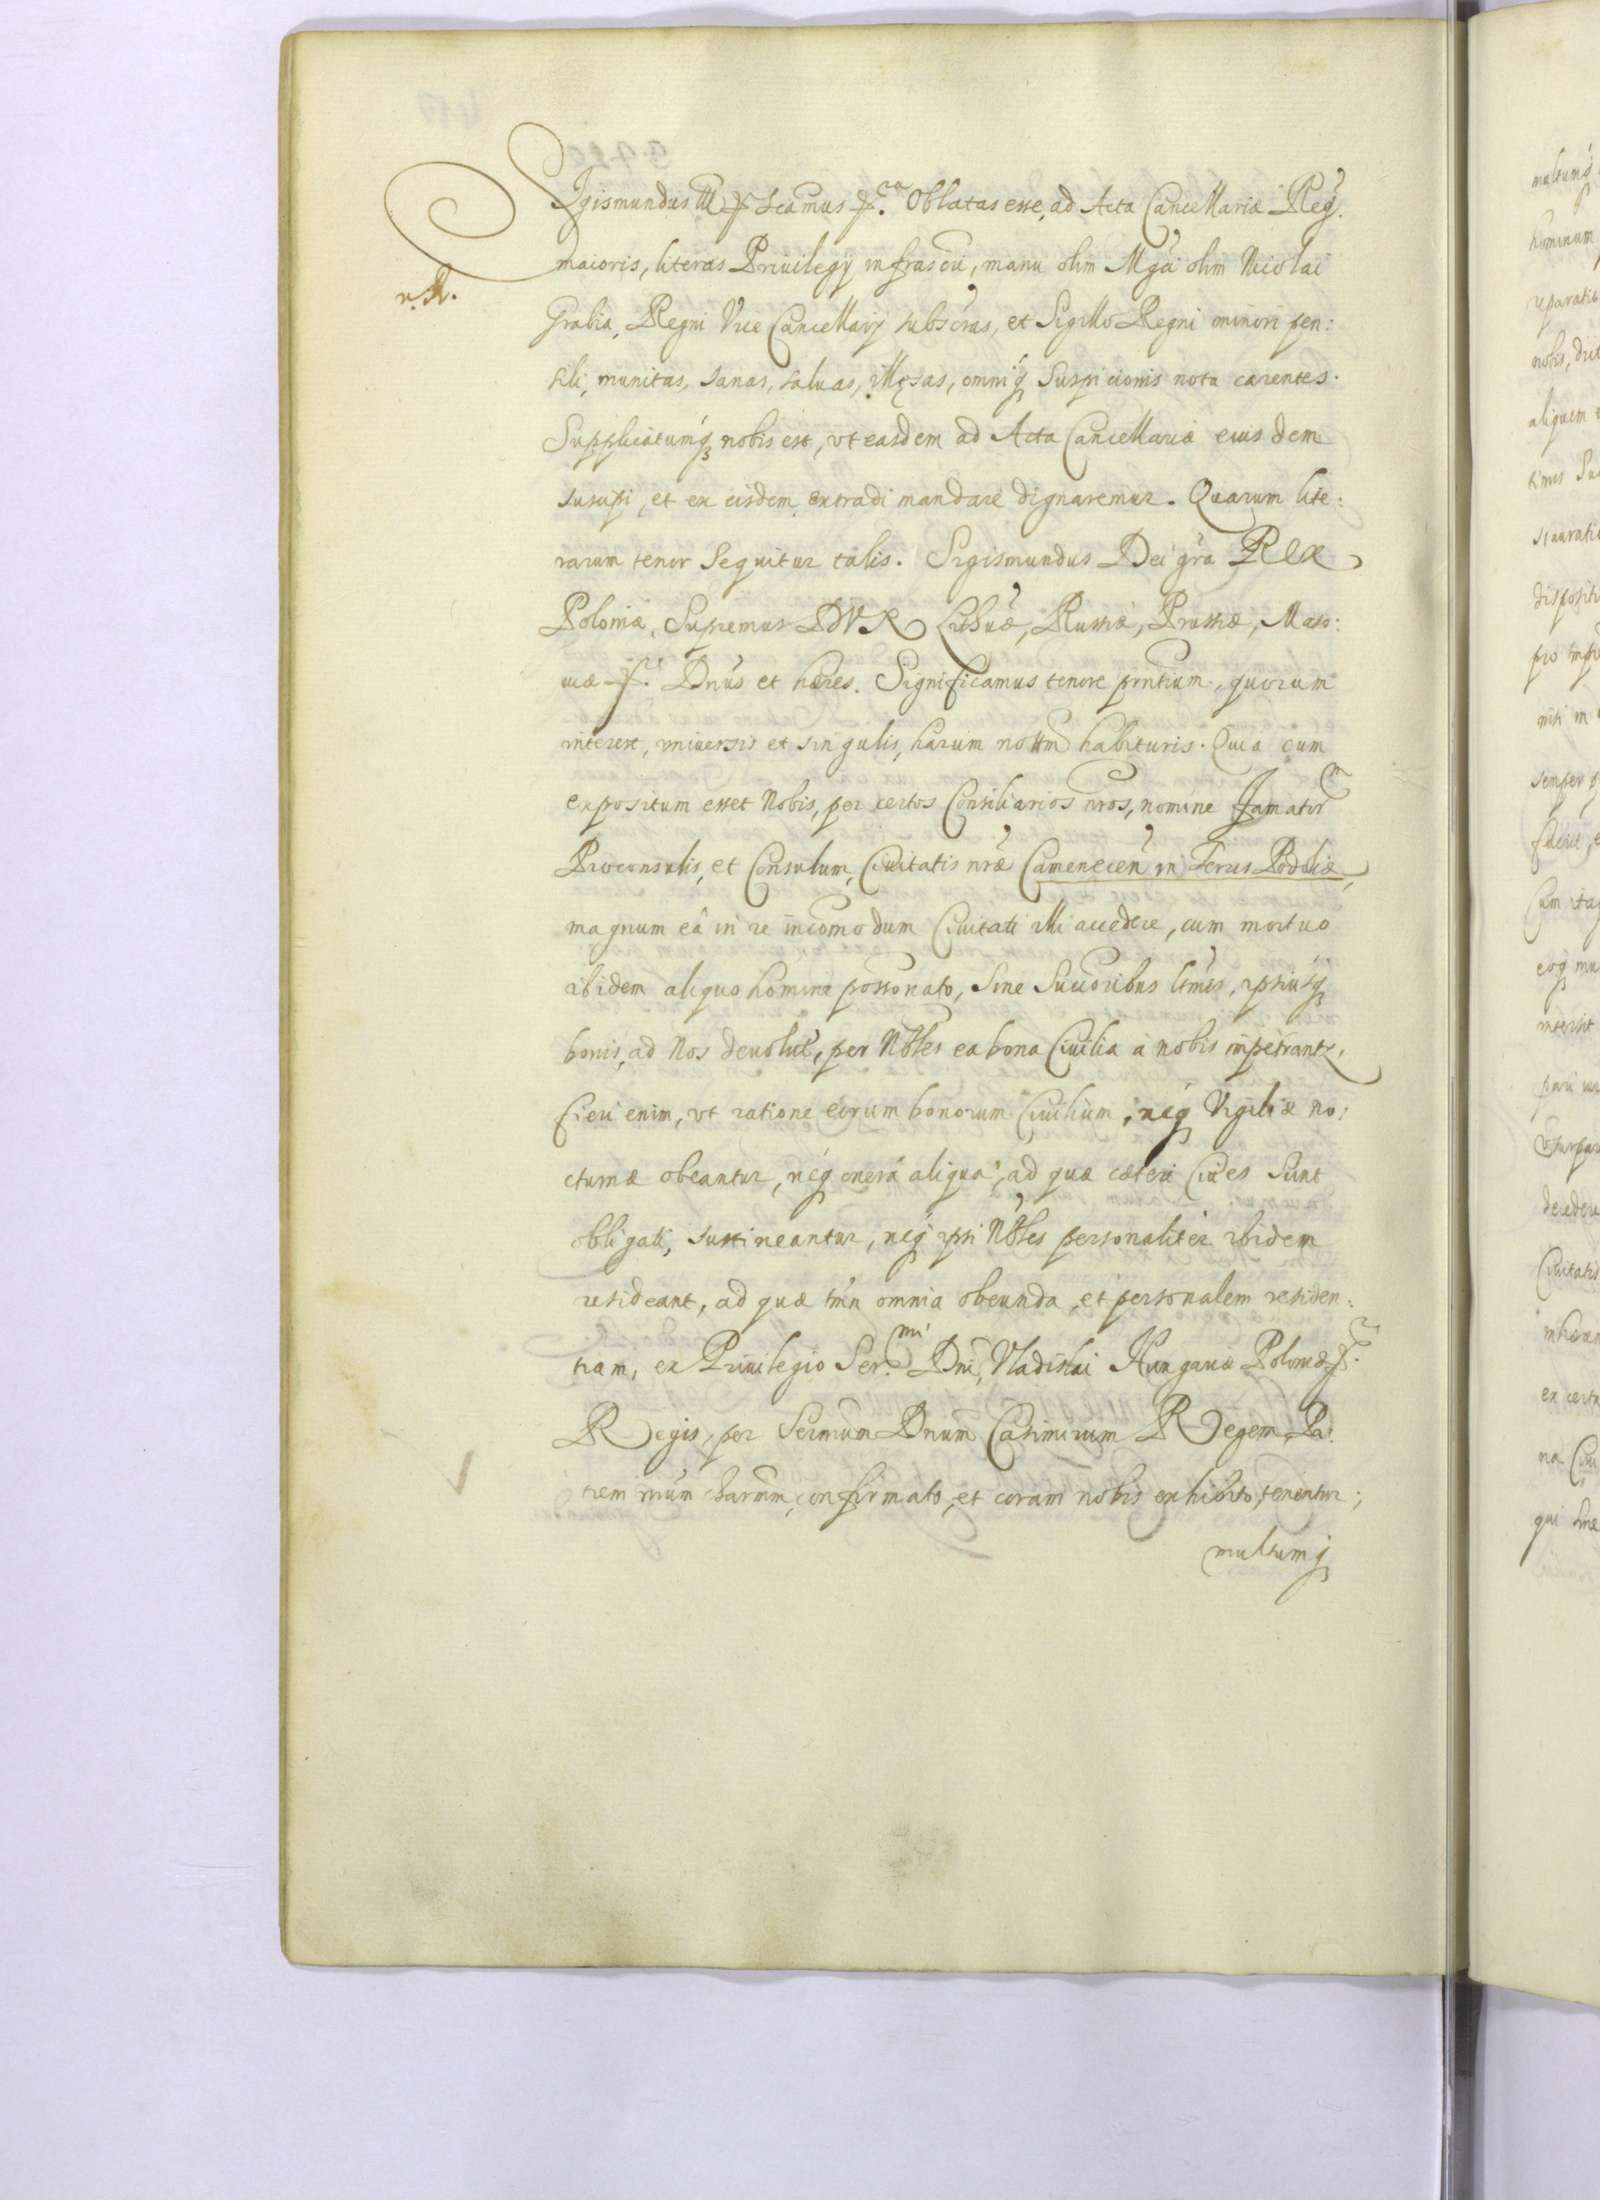 Sigismundus III Scamus Oblatas esse, ad Acta Cancellariæ Reg.
maioris, literas Priuilegij infrascri, manu olim Mgci olim Nicolai
Grabia, Regni Vice Cancellarij subscras, et Sigillo Regni minori pen:
sili, munitas, sanas, saluas, illęsas, omniq Suspicionis nota carentes.
Supplicatumq nobis est, vt easdem ad Acta Cancellariæ eius dem
suscipi, et ex eisdem extradi mandare dignaremur. Quarum lite:
rarum tenor sequitur talis. Sigismundus Dei gra Rex
Poloniæ, Supremus DVX Lithuæ, Russiæ, Prussiæ, Maso:
uiæ Dnus et hæres. Significamus tenore pntium, quorum
interest, vniuersis et singulis, harum nottm habituris. Quia cum
expositum esset Nobis, per certos Consiliarios nros, nomine Famator
Proconsulis, et Consulum, Ciuitatis nræ Camenecen in Terris Podoliæ,
magnum eâ in re incomodum Ciuitati illi accedere, cum mortuo
ibidem aliquo homine possonato, Sine Succoribus ltmis, ipsiusq
bonis, ad Nos deuolut, per Nobles ea bona Ciuilia à nobis impetrant,
fieri enim, vt ratione eorum bonorum Ciuilium, neq Vigiliæ no:
cturnæ obeantur, neq onera aliqua, ad quæ cæteri Ciues Sunt
obligati, sustineantur, neq ipsi Nobles personaliter ibidem
resideant, ad quæ tmn omnia obeunda, et personalem residen:
tiam, ex Priuilegio Ser.mi Dni, Vladislai Hungariæ Poloniæ
Regis, per Sermum Dnum Casimirum Regem Pa:
trem nrum charmm, confirmato, et coram nobis exhibito, tenentur;
multumq